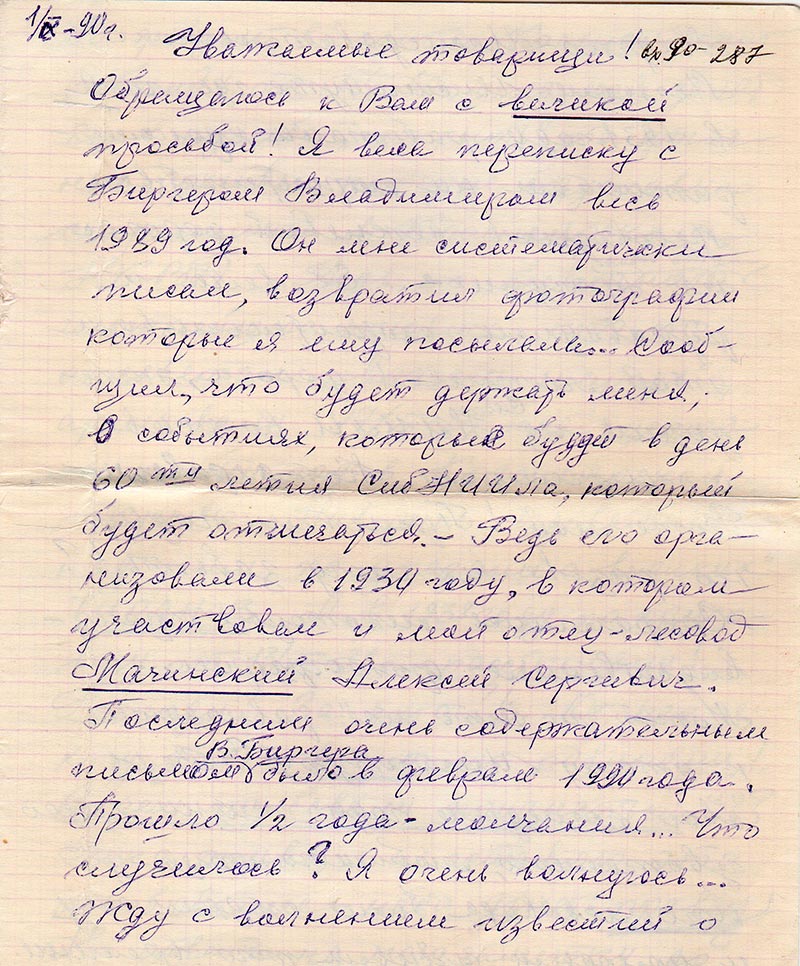 1/IX-90г.
Уважаемые товарищи! вх. 90-287
Обращаюсь к Вам с великой
просьбой! Я вела переписку с
Биргером Владимиром весь
1989 год. Он мне систематически
писал, возвратил фотографии
которые я ему посылала... Сооб-
щил, что будет держать меня,
о событиях, которые будут в день
60тилетия СибНИИЛа, который
будет отмечаться. – Ведь его орга-
низовали в 1930 году, в котором
участвовал и мой отец-лесовод
Мачинский Алексей Сергеевич.
Последним очень содержательным
В. Биргера
письмом было в феврале 1990 года.
Прошло 1/2 года - молчания... Что
случилось? Я очень волнуюсь...
Жду с волнением известий о